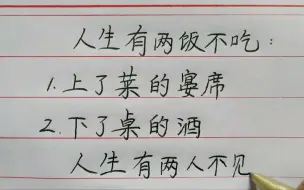 人生有两饭不吃：
1.上了菜的宴席
2.下了桌的酒
人生有两人不见